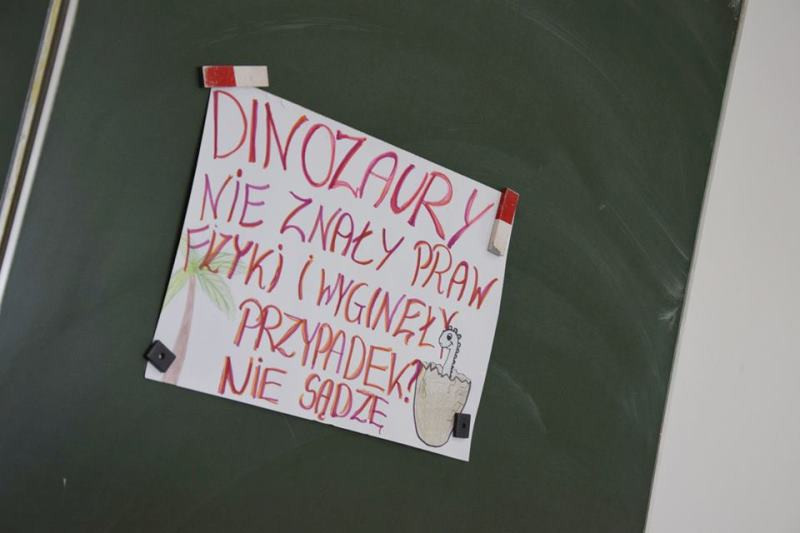 DINOZAURY
NIE ZNAŁY PRAW
FIZYKI I WYGINĘŁY
PRZYPADEK?
NIE SĄDZĘ